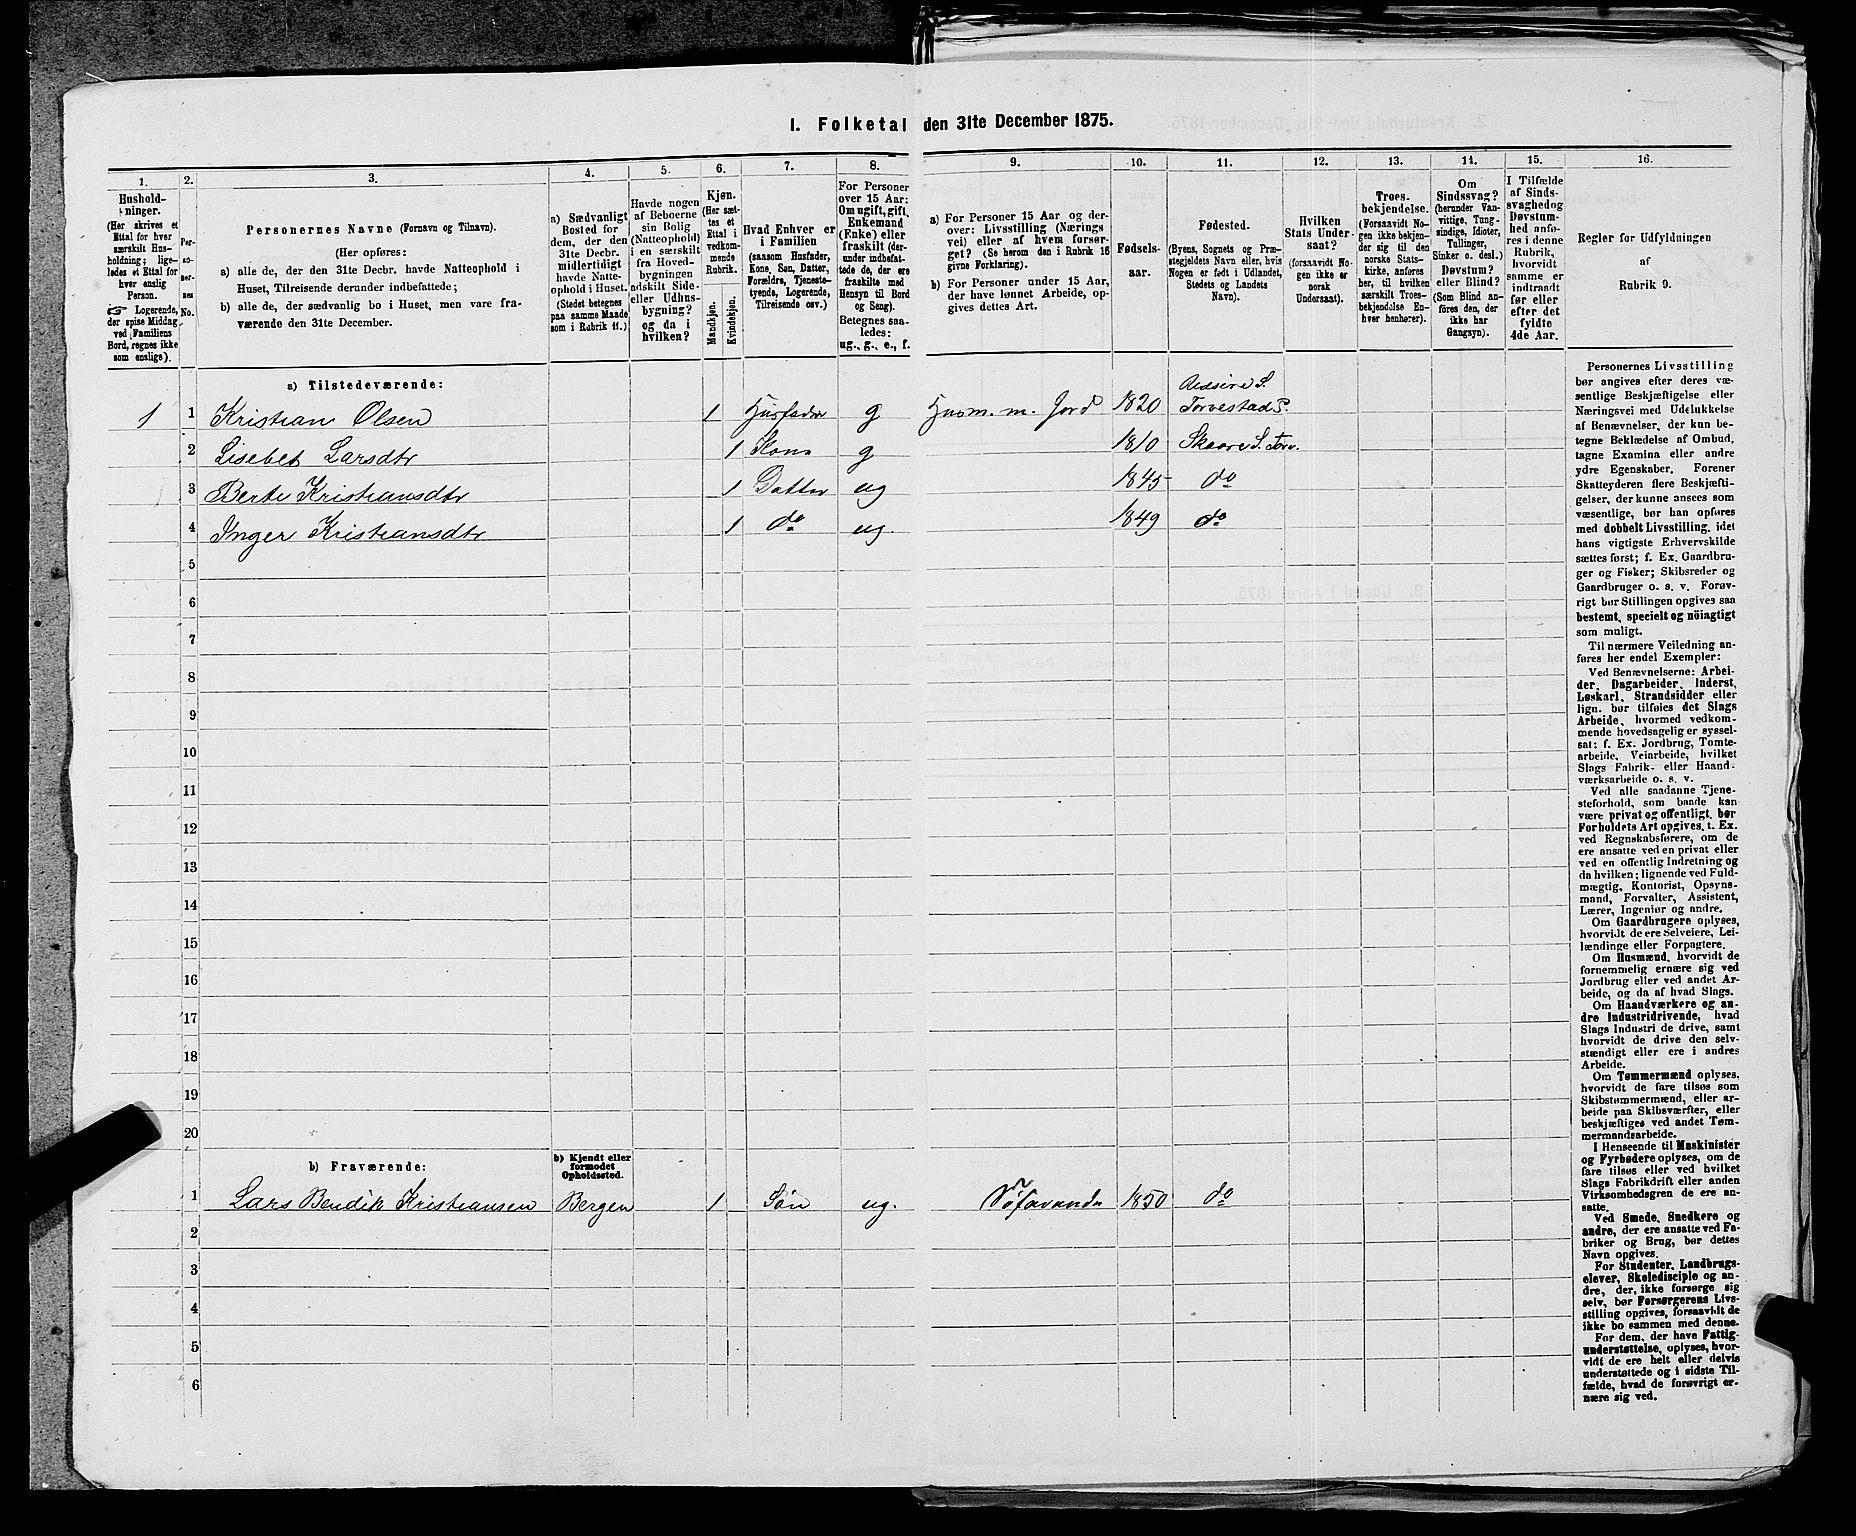 1. Folketal den 31te December 1875.
1.
Hushold-
ninger.
(Her skrives et
Ettal for hver
særskilt Hus-
holdning; lige-
ledes et Ettal for
hver enslig
Person.
☞ Logerende,
der spise Middag
ved Familiens
Bord, regnes ikke
som enslige).
2.
Per-
so-
ner-
nes
No.
3.
Personernes Navne (Fornavn og Tilnavn).
(Her opføres:
a) alle de, der den 31te Decbr. havde Natteophold i
Huset, Tilreisende derunder indbefattede;
b) alle de, der sædvanlig bo i Huset, men vare fra-
værende den 31te December.
4.
a) Sædvanligt
Bosted for
dem, der den
31te Decbr.
midlertidigt
havde Natte-
ophold i Huset.
(Stedet betegnes
paa samme Maade
som i Rubrik 11.)
5.
Havde nogen
af Beboerne
sin Bolig
(Natteophold)
i en særskilt
fra Hoved-
bygningen
adskilt Side-
eller Udhus-
bygning?
og da i
hvilken?
6.
Kjøn.
(Her sæt-
tes et
Ettal i
vedkom-
mende
Rubrik.
Mandkjøn.
Kvindekjøn.
7.
Hvad Enhver er
i Familien
(saasom Husfader,
Kone, Søn, Datter,
Forældre, Tjeneste-
tyende, Logerende,
Tilreisende osv.)
8.
For Personer
over 15 Aar:
Om ugift, gift,
Enkemand
(Enke) eller
fraskilt (der-
under indbefat-
tede de, der ere
fraskilte med
Hensyn til Bord
og Seng).
Betegnes saa-
ledes:
ug., g., e., f.
9.
a) For Personer 15 Aar og der-
over: Livsstilling (Nærings
vei) eller af hvem forsør-
get? (Se herom den i Rubrik 16
givne Forklaring).
b) For Personer under 15 Aar,
der have lønnet Arbeide, op-
gives dettes Art.
10.
Fødsels-
aar.
11.
Fødested.
(Byens, Sognets og Præ-
stegjeldets Navn eller, hvis
Nogen er født i Udlandet,
Stedets og Landets
Navn).
12.
Hvilken
Stats Under-
saat?
(forsaavidt No-
gen ikke er
norsk
Undersaat).
13.
Troes-
bekjendelse.
(Forsaavidt No-
gen ikke bekjen-
der sig til den
norske Stats-
kirke, anføres
her, til hvilken
særskilt Troes-
bekjendelse En-
hver henhører).
14.
Om
Sindssvag?
(herunder Van-
vittige, Tung-
sindige, Idioter,
Tullinger,
Sinker o. desl.)
Døvstum?
eller Blind?
(Som Blind an-
føres den, der
ikke har
Gangsyn).
15.
I Tilfælde
af Sinds-
svaghed og
Døvstum-
hed anfø-
res i denne
Rubrik,
hvorvidt
samme er
indtraadt
før eller
efter det
fyldte
4de Aar.
16.
Regler for Udfyldningen
af
Rubrik 9.
a) Tilstedeværende:
1 1 Kristian Olsen 1 Husfader g Husm. m. Jord 1820 S. Torvestad P.
2 Lisebet Larsdtr 1 Kone g 1810 Skaare S. Torv.
3 Berte Kristiansdtr 1 Datter ug 1845 do
4 Inger Kristiansdtr 1 do ug. 1849 do
5
6
7
8
9
10
11
12
13
14
15
16
17
18
19
20
b) Fraværende:
b) Kjendt eller
formodet
Opholdssted.
1 Lars Bendik Kristiansen Bergen 1 Søn ug. Søfarande 1850 do
2
3
4
5
6
Personernes Livsstilling
bør angives efter deres væ-
sentlige Beskjæftigelse eller
Næringsvei med Udelukkelse
af Benævnelser, der kun be-
tegne Beklædelse af Ombud,
tagne Examina eller andre
ydre Egenskaber. Forener
Skatteyderen flere Beskjæfti-
gelser, der kunne ansees som
væsentlige, bør han opføres
med dobbelt Livsstilling, idet
hans vigtigste Erhvervskilde
sættes først; f. Ex. Gaardbru-
ger og Fisker; Skibsreder og
Gaardbruger o. s. v. Forøv-
rigt bør Stillingen opgives saa
bestemt, specielt og nöiagtigt
som muligt.
Til nærmere Veiledning an-
føres her endel Exempler:
Ved Benævnelserne: Arbei-
der, Dagarbeider, Inderst,
Løskarl, Strandsidder eller
lign. bør tilføies det Slags
Arbeide, hvormed vedkom-
mende hovedsagelig er syssel-
sat; f. Ex. Jordbrug, Tomte-
arbeide, Veiarbeide, hvilket
Slags Fabrik- eller Haand-
værksarbeide o. s. v.
Ved alle saadanne Tjene-
steforhold, som baade kan
være privat og offentligt, bør
Forholdets Art opgives, t. Ex.
ved Regnskabsførere, om de
ere ansatte ved en privat eller
ved en offentlig Indretning og
da hvilken; lignende ved Fuld-
mægtig, Kontorist, Opsyns-
mand, Forvalter, Assistent,
Lærer, Ingeniør og andre.
Om Gaardbrugere oplyses,
hvorvidt de ere Selveiere, Lei-
lændinge eller Forpagtere.
Om Husmænd, hvorvidt de
fornemmelig ernære sig ved
Jordbrug eller ved andet Ar-
beide, og da af hvad Slags.
Om Haandværkere og an-
dre Industridrivende, hvad
Slags Industri de drive, samt
hvorvidt de drive den selv-
stændigt eller ere i andres
Arbeide.
Om Tømmermænd oplyses,
hvorvidt de fare tilsøs som
Skibstømmermænd, eller ar-
beide paa Skibsværfter, eller
beskjæftiges ved andet Tøm-
mermandsarbeide.
I Henseende til Maskinister
og Fyrbødere oplyses, om de
fare tilsøs eller ved hvilket
Slags Fabrikdrift eller anden
Virksomhedsgren de ere an-
satte.
Ved Smede, Snedkere og
andre, der ere ansatte ved Fa-
briker og Brug, bør dettes
Navn opgives.
For Studenter, Landbrugs-
elever, Skoledisciple og an-
dre, der ikke forsørge sig
selv, bør Forsørgerens Livs-
stilling opgives, forsaavidt de
ikke bo sammen med denne.
For dem, der have Fattig-
understøttelse, oplyses, hvor-
vidt de ere helt eller delvis
understøttede og i sidste Til-
fælde, hvad de forøvrigt er-
nære sig ved.